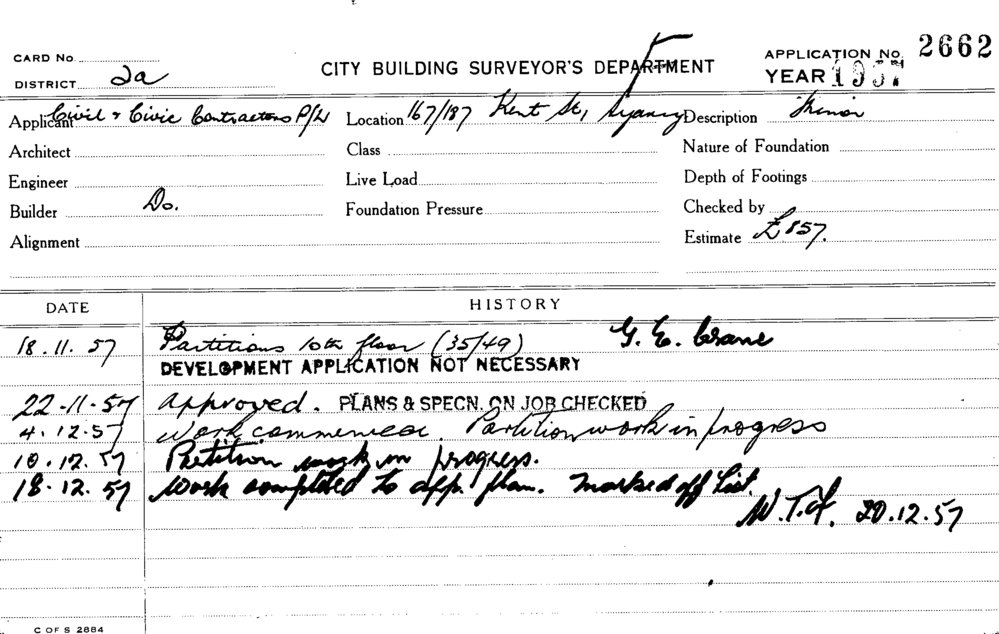 CARD No.
DISTRICT 2a
CITY BUILDING SURVEYOR'S DEPARTMENT
APPLICATION No. 2662
YEAR 1957
Applicant Civil & Civic Contractors P/L Location 167/187 Kent St, Sydney Description Minor
Architect Class Nature of Foundation
Engineer Live Load Depth of Footings
Builder Do. Foundation Pressure Checked by
Alignment Estimate £857.
DATE HISTORY
18.11.57 Partitions 10th floor (35/49) G. E. Crane
DEVELOPMENT APPLICATION NOT NECESSARY
22-11-57 Approved. PLANS & SPECN. ON JOB CHECKED
4.12.57 Work commenced. Partition work in progress
10.12.57 Partition work in progress.
18.12.57 Work completed to app. plan. Marked off List.
20.12.57
C OF S 2884